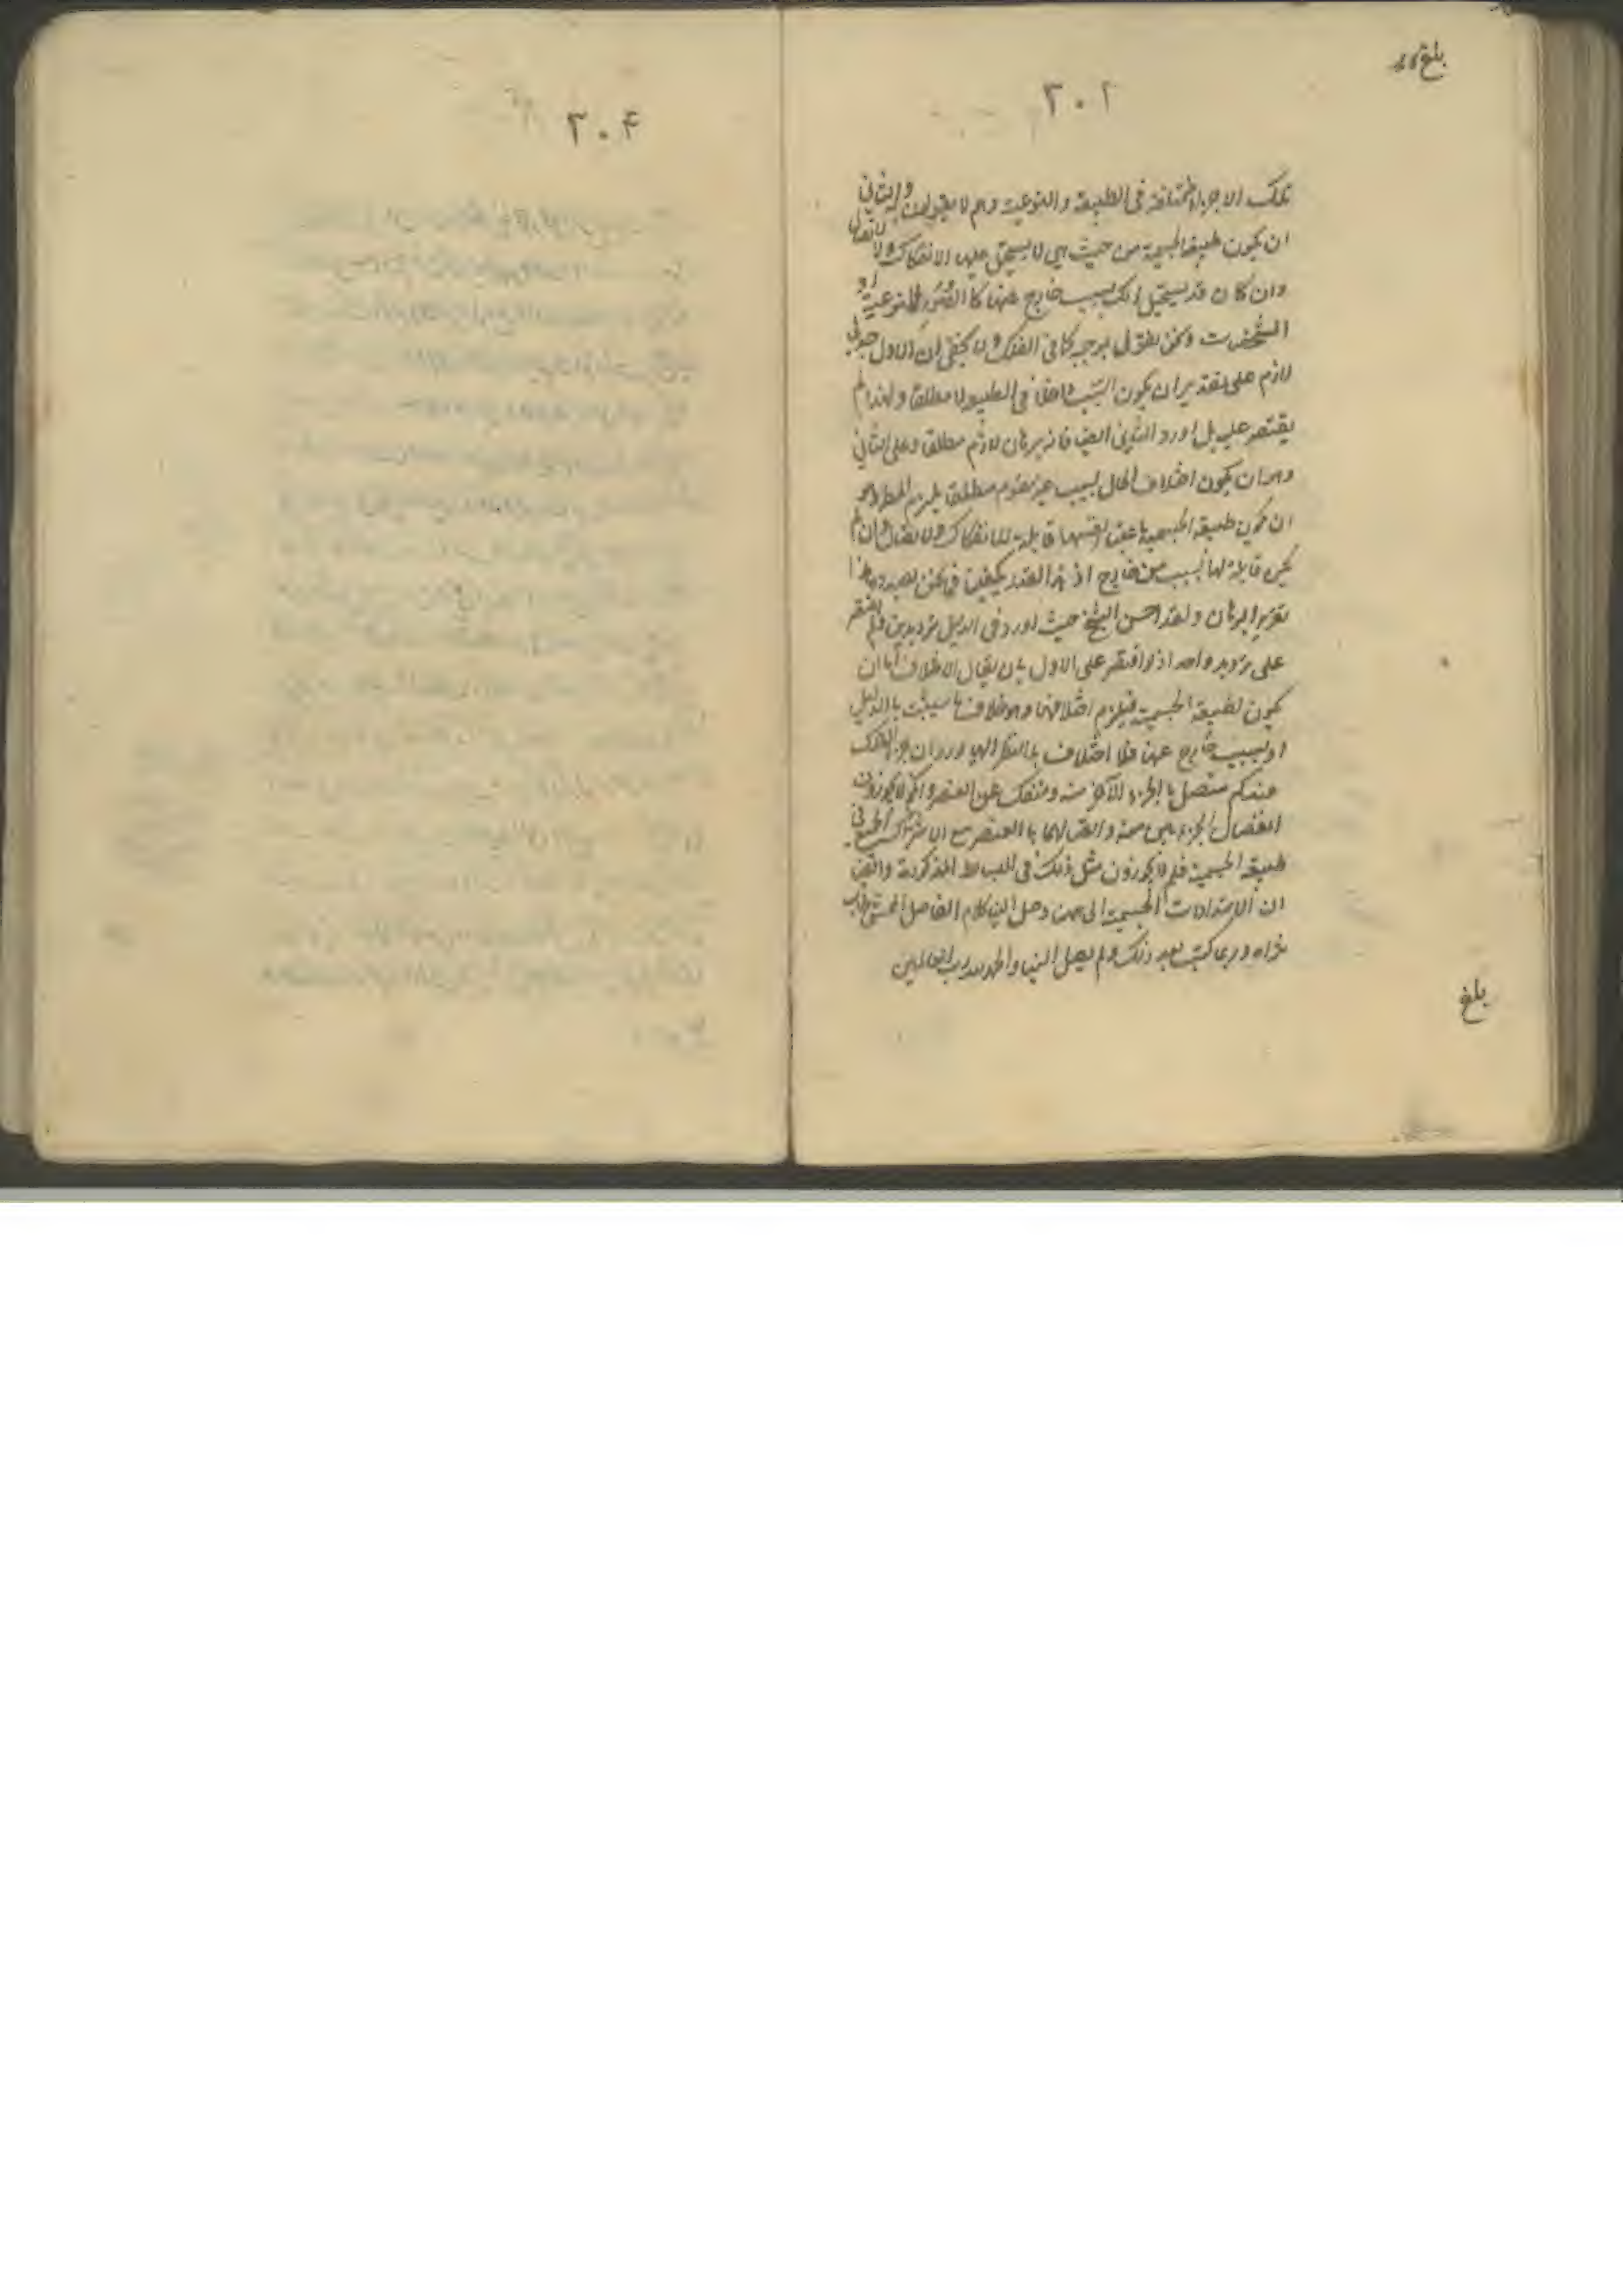 بلغ
٣٠٢
تلك الاجزاء مختلفة فى الطبيعة والنوعية وهم لا يقولون والثاني
ان يكون طبيعة الجسمية من حيث هي لا يستحيل عليها الانفكاك ولا الاتصال
وان كان قد يستحيل ذلك بسبب خارج عنها كالصور النوعية او
التشخصات ونحن نقول بموجبه كما في الفلك ولا يخفى ان الاول
لازم على تقدير ان يكون السبب فى الطبيعة لا مطلقا ولهذا لم
يقتصر عليه بل اورد الثاني ايضا فانه برهان لازم مطلقا وعلى الثاني
وهو ان يكون اختلاف الحال بسبب غير مقوم مطلقا يلزم المط وهو
ان يكون طبيعة الجسمية باعتبار نفسها قابلة للانفكاك والاتصال وان لم
يكن قابلة لها بسبب من خارج اذ هذا القدر يكفينا فى نحن بصدده هذا
تقرير البرهان ولقد احسن الشيخ حيث اورد فى الدليل ترديدين ولم يقتصر
على ترديد واحد اذ لو اقتصر على الاول بان يقال الاختلاف اما ان
يكون لطبيعة الجسمية فيلزم اختلافها وهو خلاف ما سيثبت بالدليل
او بسبب خارج عنها فلا اختلاف بالنظر اليها ورد ان جزء الفلك
عندكم متصل بالجزء الآخر منه ومنفك عن العنصر وانتم لا تجوزون
انفصال الجزءين منه واتصالهما بالعنصر مع الاشتراك الجميع فى
طبيعة الجسمية فلم لا يجوزون مثل ذلك فى البسائط المذكورة وايضا
ان الامتدادات الجسمية الى ههنا وصل الينا كلام الفاضل المحشي طاب
ثراه وربما كتب بعد ذلك ولم يصل الينا والحمد لله رب العالمين
بلغ
٣٠۴